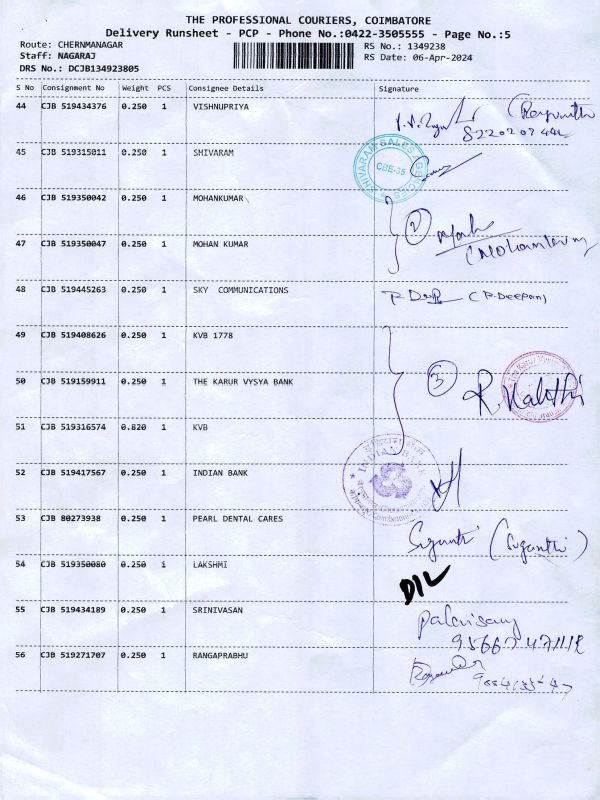 THE PROFESSIONAL COURIERS, COIMBATORE
Delivery Runsheet - PCP - Phone No.:0422-3505555 - Page No.:5
Route: CHERNMANAGAR
RS No.: 1349238
Staff: NAGARAJ
RS Date: 06-Apr-2024
DRS No.: DCJB134923805
S No Consignment No Weight PCS Consignee Details Signature
44 CJB 519434376 0.250 1 VISHNUPRIYA
45 CJB 519315011 0.250 1 SHIVARAM
SHIVARAM SALES AGENCIES
CBE-35
46 CJB 519350042 0.250 1 MOHANKUMAR
2
47 CJB 519350047 0.250 1 MOHAN KUMAR
48 CJB 519445263 0.250 1 SKY COMMUNICATIONS (P.Deepan)
49 CJB 519408626 0.250 1 KVB 1778
50 CJB 519159911 0.250 1 THE KARUR VYSYA BANK
3
51 CJB 519316574 0.820 1 KVB
52 CJB 519417567 0.250 1 INDIAN BANK
INDIAN BANK
53 CJB 80273938 0.250 1 PEARL DENTAL CARES
(Suganthi)
54 CJB 519350080 0.250 1 LAKSHMI
D/L
55 CJB 519434189 0.250 1 SRINIVASAN
56 CJB 519271707 0.250 1 RANGAPRABHU